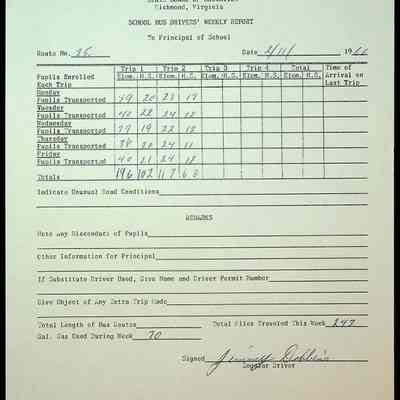 Richmond, Virginia
SCHOOL BUS DRIVERS' WEEKLY REPORT
To Principal of School
Route No. 25 Date 2/11/ 1966
Trip 1 Trip 2 Trip 3 Trip 4 Total Time of
Pupils Enrolled Elem. H.S. Elem. H.S. Elem. H.S. Elem. H.S. Elem. H.S. Arrival on
Each Trip Last Trip
Monday
Pupils Transported 39 20 23 17
Tuesday
Pupils Transported 40 22 24 12
Wednesday
Pupils Transported 39 19 22 12
Thursday
Pupils Transported 38 20 24 11
Friday
Pupils Transported 40 21 24 12
Totals 196 102 117
Indicate Unusual Road Conditions
REMARKS
Note Any Misconduct of Pupils
Other Information for Principal
If Substitute Driver Used, Give Name and Driver Permit Number
Give Object of Any Extra Trip Made
Total Length of Bus Routes Total Miles Traveled This Week 247
Gal. Gas Used During Week 70
Signed Jimmy Dobbins
Regular Driver